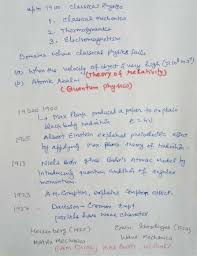 upto 1900: Classical Physics
1. Classical mechanics
2. Thermodynamics
3. Electromagnetism
Domains where classical Physics fails
(a) When the velocity of object is very high (3x10⁸ ms⁻¹)
(Theory of relativity)
(b) Atomic Realm
(Quantum physics)
1900
Max Planck produced a paper to explain
black body radiation E = hν
1905 Albert Einstein explained photoelectric effect
by applying Max Planck theory of radiation.
1913 Niels Bohr gave Bohr's Atomic model by
introducing quantum condition of angular
momentum.
1923 A.H. Compton, explains Compton effect.
1927 Davisson-Germer Expt
particles have wave character
Heisenberg (1925) Erwin Schrodinger (1926)
Matrix Mechanics Wave Mechanics